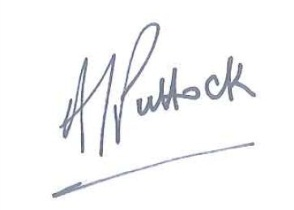 AJ Puttock